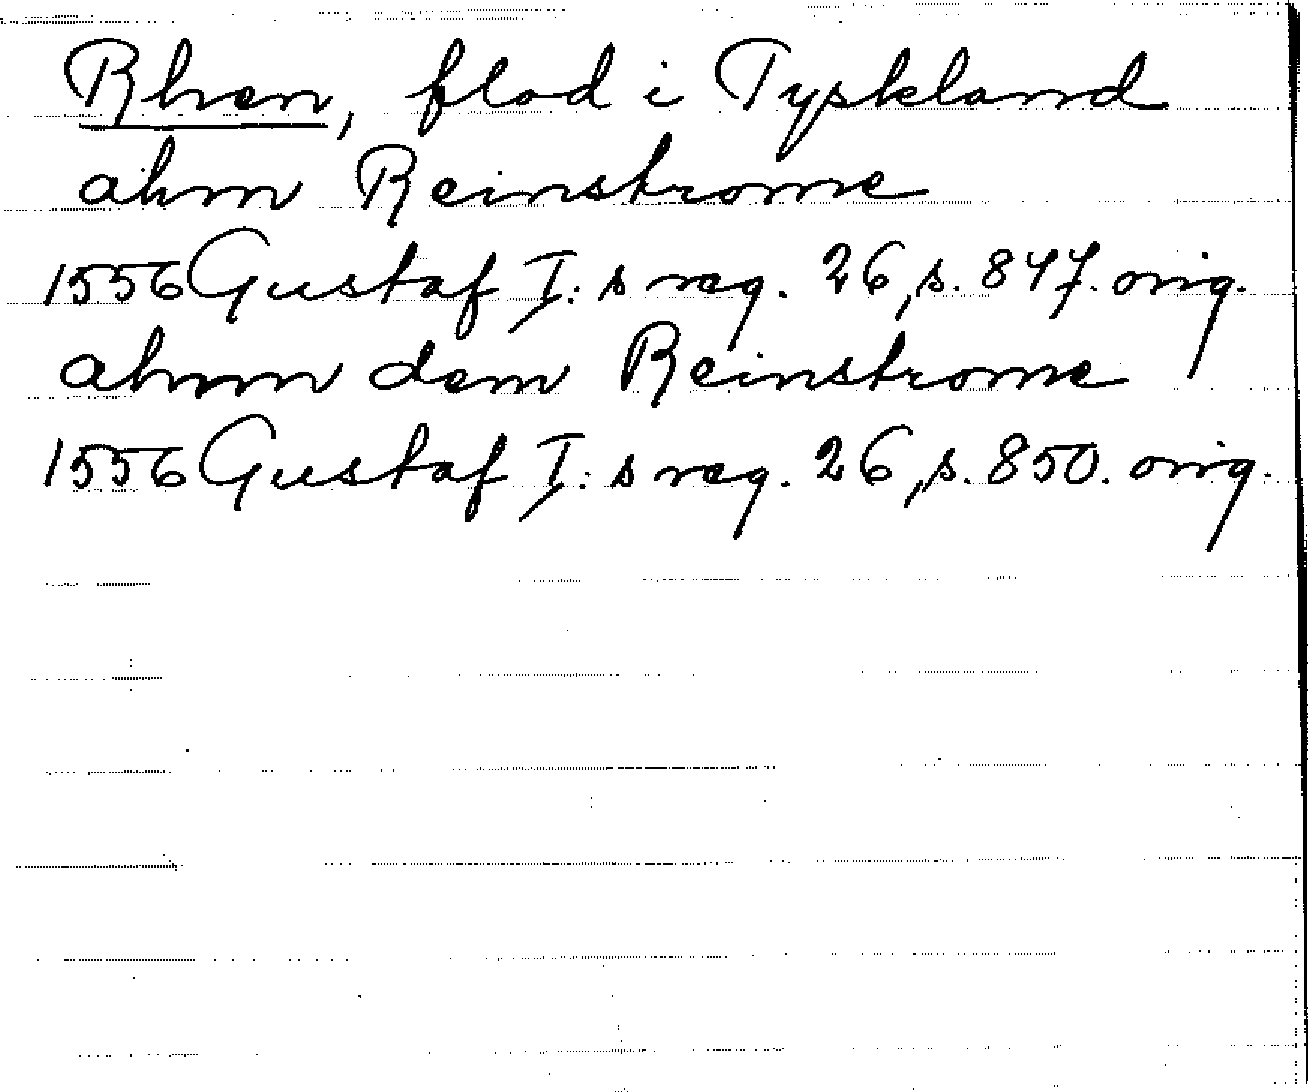 Rhen, flod i Tyskland
ahm Reinstrome
1556 Gustaf I:s reg. 26, s. 847. orig.
ahnn dem Reinstrome
1556 Gustaf I:s reg. 26, s. 850. orig.